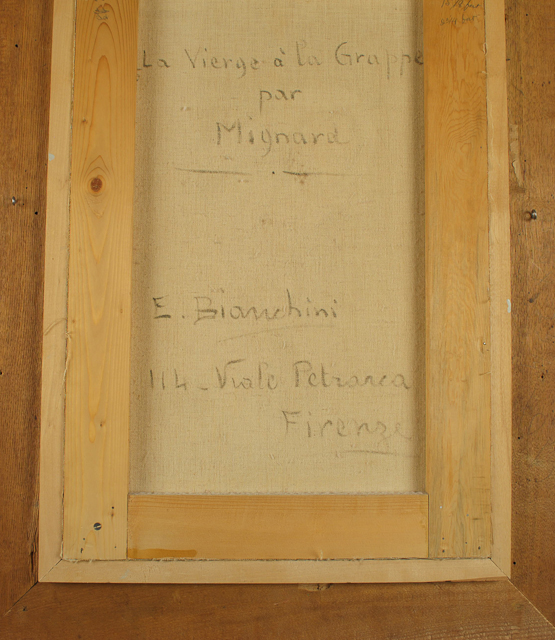 La Vierge à la Grappe
par
Mignard
E. Bianchini
114 - Viale Petrarca
Firenze